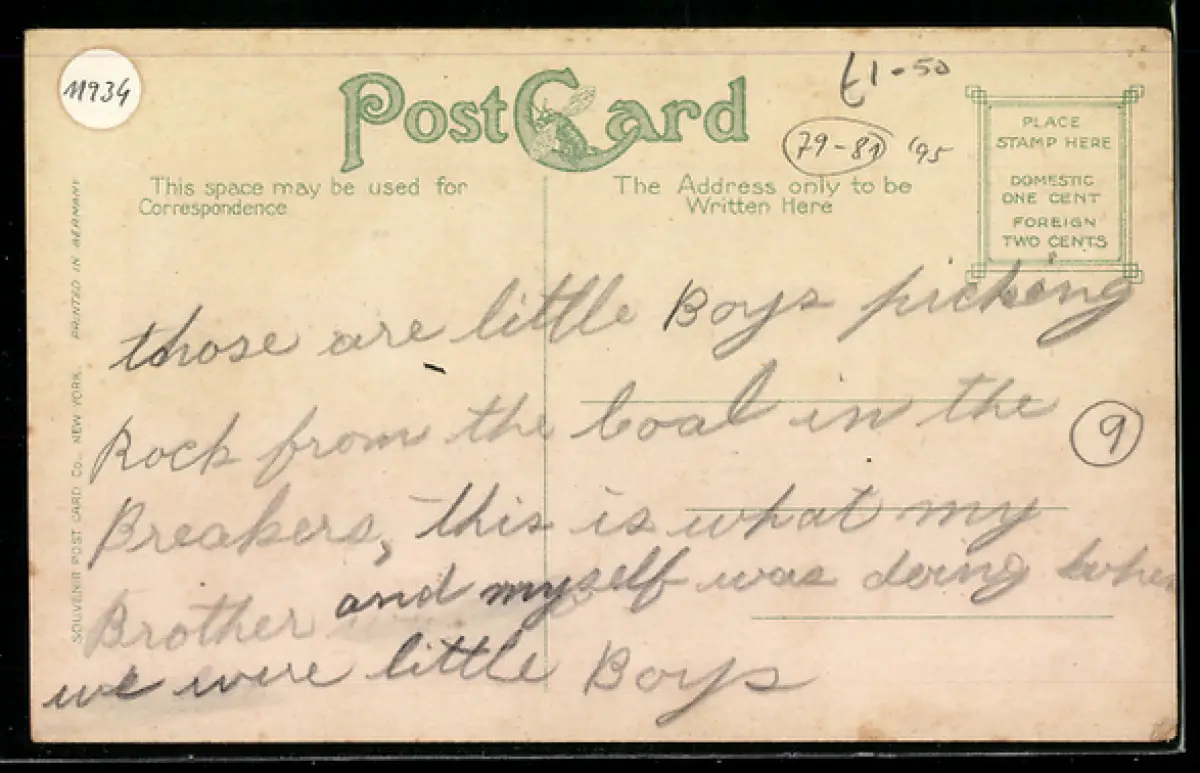 11934
£1-50
Post Card
79-81 '95
PLACE
STAMP HERE
DOMESTIC
ONE CENT
FOREIGN
TWO CENTS
This space may be used for
Correspondence
The Address only to be
Written Here
SOUVENIR POST CARD CO., NEW YORK. PRINTED IN GERMANY
those are little Boys picking
Rock from the Coal in the
9
Breakers, this is what my
Brother and myself was doing when
we were little Boys